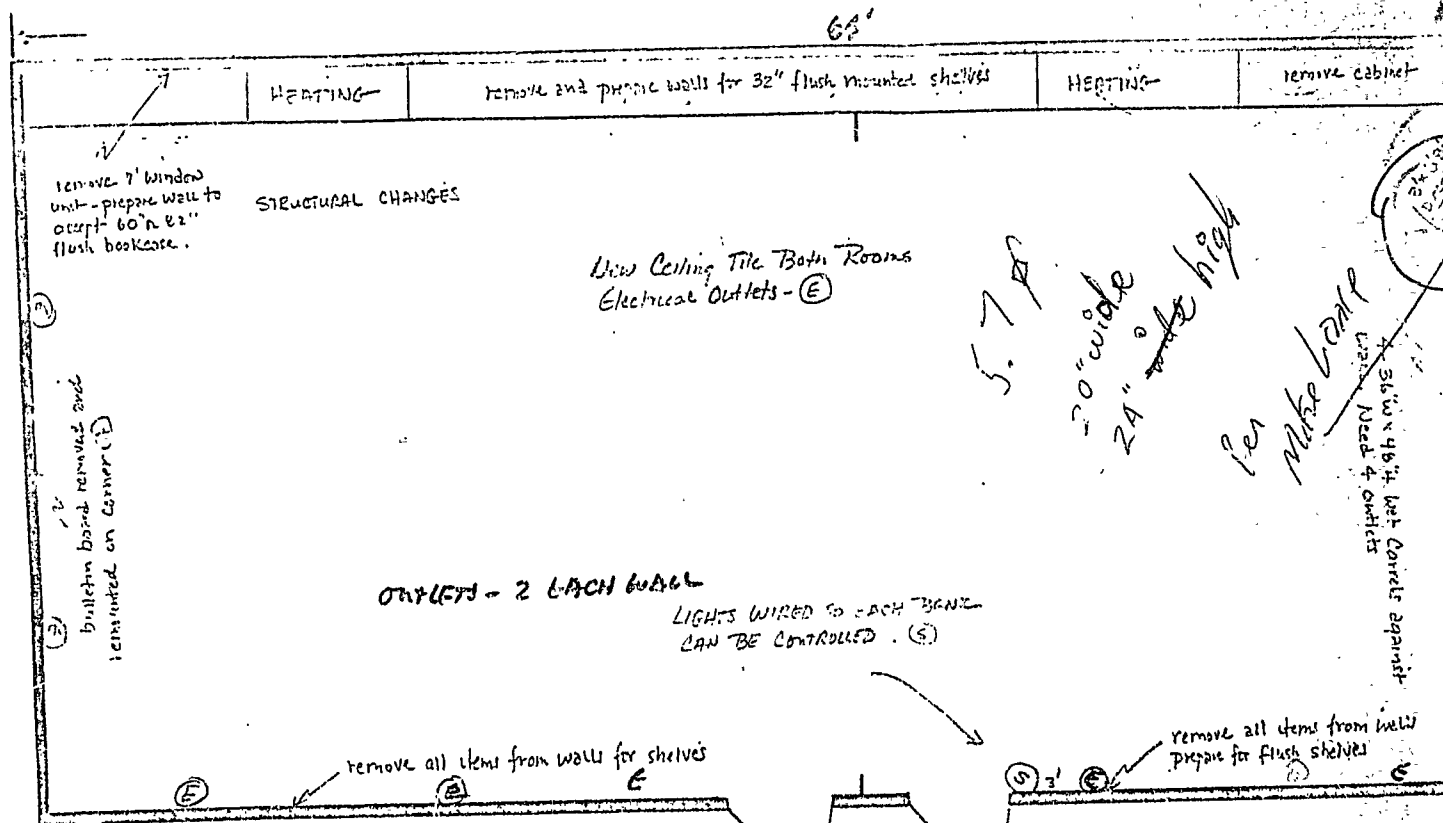 HEATING
remove and prepare walls for 32" flush mounted shelves
HEATING
remove cabinet
remove 7' window
unit - prepare wall to
accept 60" 82"
flush bookcase.
STRUCTURAL CHANGES
New Ceiling Tile Both Rooms
Electrical Outlets - (E)
20" wide
24" high
Per
Mike
4-36"W x 48"H Wet Carrels against
Need 4 outlets
bulletin board removed and
remounted on corner
OUTLETS - 2 EACH WALL
LIGHTS WIRED SO EACH BANK
CAN BE CONTROLLED. (S)
remove all items from walls for shelves
remove all items from walls
prepare for flush shelves
(E)
E
(S) 3' (E)